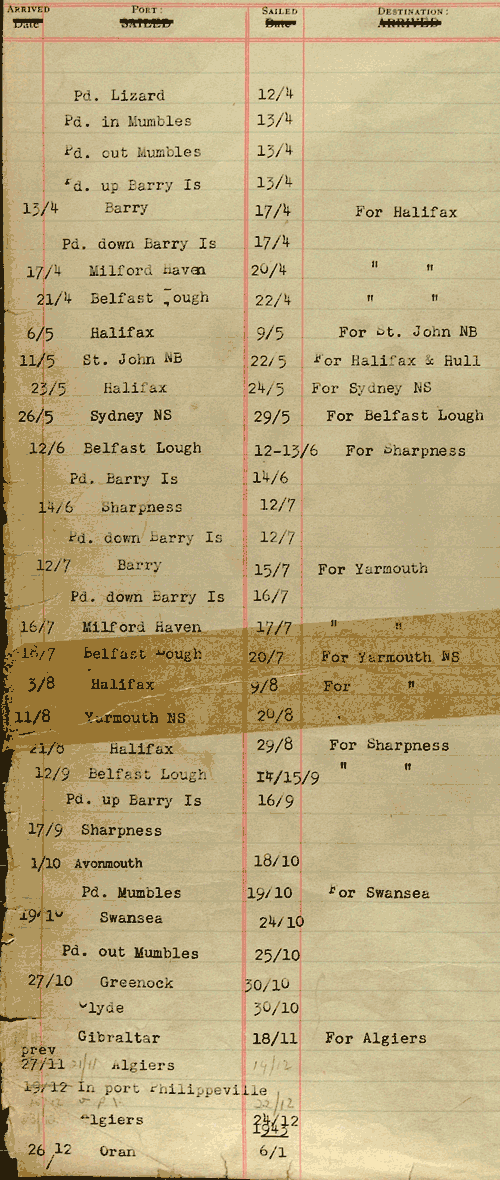 ARRIVED PORT: SAILED DESTINATION:
Date SAILED Date ARRIVED
Pd. Lizard 12/4
Pd. in Mumbles 13/4
Pd. out Mumbles 13/4
Pd. up Barry Is 13/4
13/4 Barry 17/4 For Halifax
Pd. down Barry Is 17/4
17/4 Milford Haven 20/4 " "
21/4 Belfast Lough 22/4 " "
6/5 Halifax 9/5 For St. John NB
11/5 St. John NB 22/5 For Halifax & Hull
23/5 Halifax 24/5 For Sydney NS
26/5 Sydney NS 29/5 For Belfast Lough
12/6 Belfast Lough 12-13/6 For Sharpness
Pd. Barry Is 14/6
14/6 Sharpness 12/7
Pd. down Barry Is 12/7
12/7 Barry 15/7 For Yarmouth
Pd. down Barry Is 16/7
16/7 Milford Haven 17/7 " "
18/7 Belfast Lough 20/7 For Yarmouth NS
3/8 Halifax 9/8 For "
11/8 Yarmouth NS 20/8
21/8 Halifax 29/8 For Sharpness
12/9 Belfast Lough 14/15/9 " "
Pd. up Barry Is 16/9
17/9 Sharpness
1/10 Avonmouth 18/10
Pd. Mumbles 19/10 For Swansea
19/10 Swansea 24/10
Pd. out Mumbles 25/10
27/10 Greenock 30/10
Clyde 30/10
Gibraltar 18/11 For Algiers
prev
27/11 21/11 Algiers 19/12
19/12 In port Philippeville
22/12
Algiers 24/12
1943
26/12 Oran 6/1